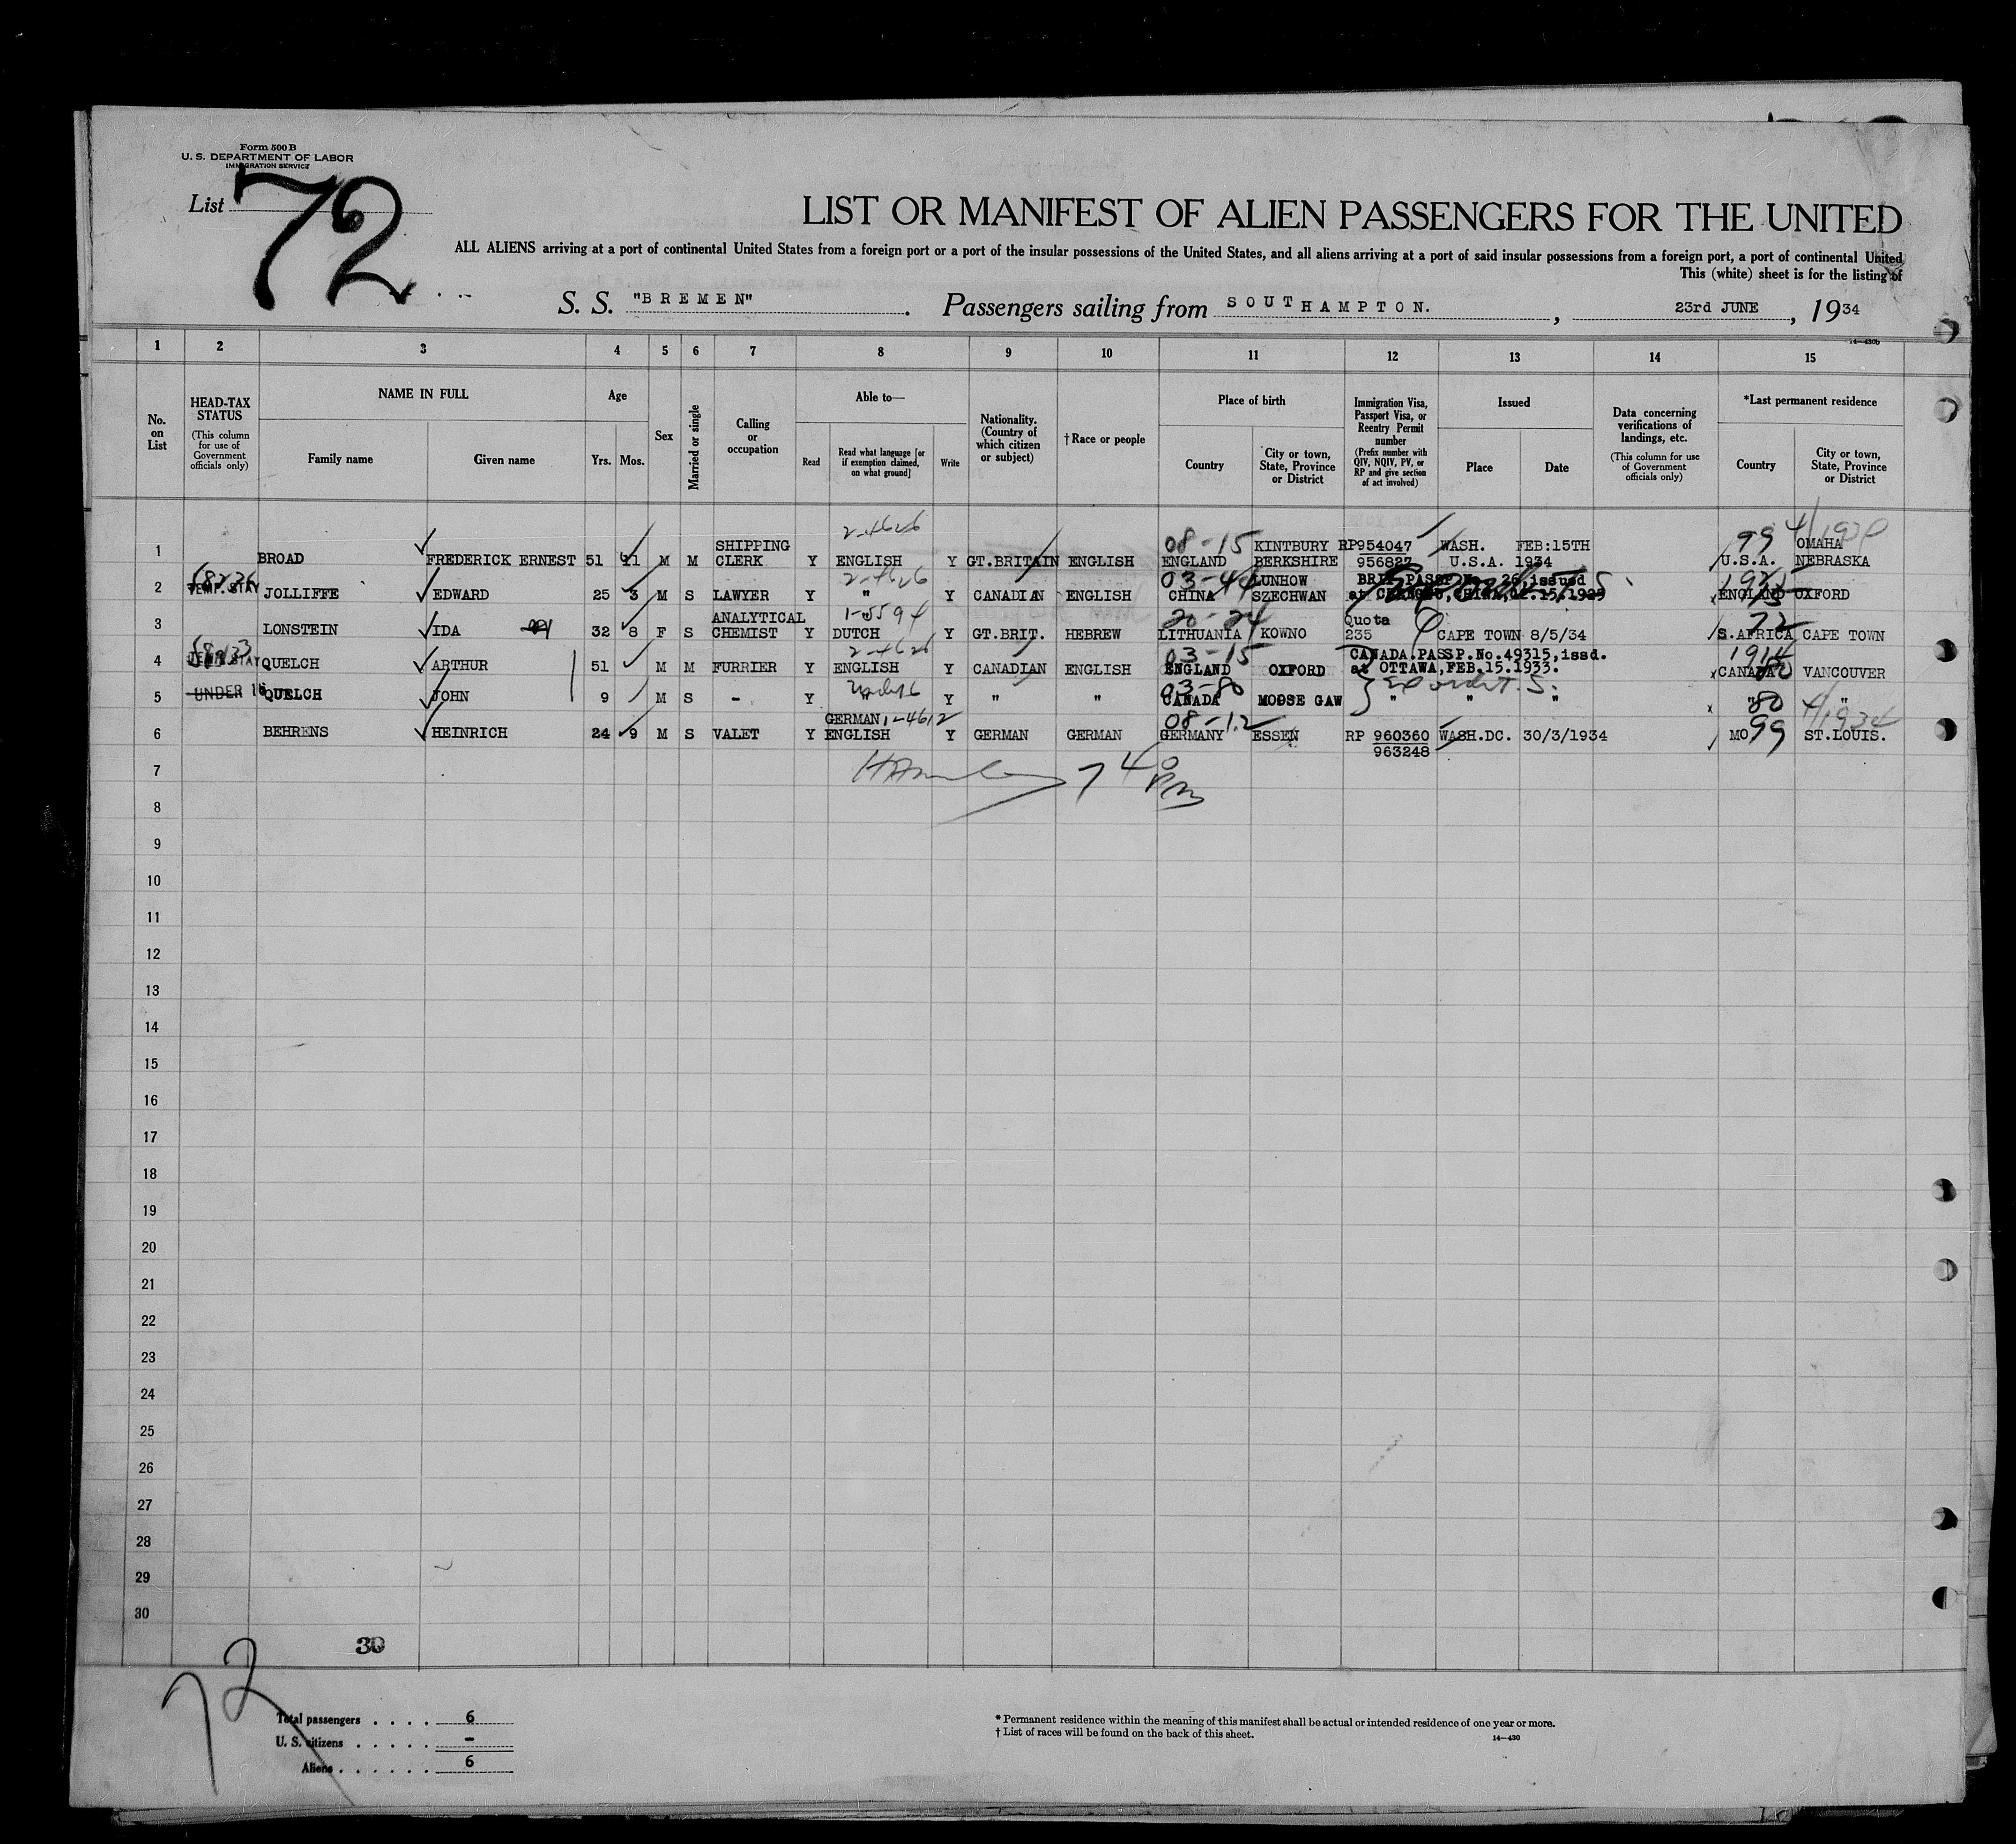 Form 500 B
U. S. DEPARTMENT OF LABOR
IMMIGRATION SERVICE
List 72
LIST OR MANIFEST OF ALIEN PASSENGERS FOR THE UNITED
ALL ALIENS arriving at a port of continental United States from a foreign port or a port of the insular possessions of the United States, and all aliens arriving at a port of said insular possessions from a foreign port, a port of continental United
This (white) sheet is for the listing of
S. S. "BREMEN". Passengers sailing from SOUTHAMPTON. , 23rd JUNE , 1934
14—430b
1 2 3 4 5 6 7 8 9 10 11 12 13 14 15
No. on List
HEAD-TAX STATUS
(This column for use of Government officials only)
NAME IN FULL
Family name Given name
Age
Yrs. Mos.
Sex
Married or single
Calling or occupation
Able to—
Read
Read what language [or if exemption claimed, on what ground]
Write
Nationality. (Country of which citizen or subject)
† Race or people
Place of birth
Country
City or town, State, Province or District
Immigration Visa, Passport Visa, or Reentry Permit number
(Prefix number with QIV, NQIV, PV, or RP and give section of act involved)
Issued
Place Date
Data concerning verifications of landings, etc.
(This column for use of Government officials only)
*Last permanent residence
Country
City or town, State, Province or District
2-4626 08-15 99 4/1930
1 BROAD FREDERICK ERNEST 51 11 M M SHIPPING CLERK Y ENGLISH Y GT.BRITAIN ENGLISH ENGLAND KINTBURY BERKSHIRE RP954047 956827 WASH. U.S.A. FEB:15TH 1934 U.S.A. OMAHA NEBRASKA
2-4626 03-44
2 TEMP. STAY JOLLIFFE EDWARD 25 3 M S LAWYER Y " Y CANADIAN ENGLISH CHINA LUNHOW SZECHWAN BRIT.PASSP. 26,issued at CHINA, 15,1925 ENGLAND OXFORD
1-5594 20-24 72
3 LONSTEIN IDA 32 8 F S ANALYTICAL CHEMIST Y DUTCH Y GT.BRIT. HEBREW LITHUANIA KOWNO Quota 235 CAPE TOWN 8/5/34 S.AFRICA CAPE TOWN
2-4626 03-15 1914
4 TEMP. STAY QUELCH ARTHUR 51 M M FURRIER Y ENGLISH Y CANADIAN ENGLISH ENGLAND OXFORD CANADA.PASSP.No.49315,issd. at OTTAWA,FEB.15.1933. CANADA VANCOUVER
03-80 80
5 UNDER 16 QUELCH JOHN 9 M S - Y " Y " " CANADA MOOSE GAW " " " " "
1-4612 08-12 99 4/1934
6 BEHRENS HEINRICH 24 9 M S VALET Y GERMAN ENGLISH Y GERMAN GERMAN GERMANY ESSEN RP 960360 963248 WASH.DC. 30/3/1934 MO ST.LOUIS.
7 7 40 PM
8
9
10
11
12
13
14
15
16
17
18
19
20
21
22
23
24
25
26
27
28
29
30
30
72
Total passengers . . . . 6
U. S. citizens . . . . . -
Aliens . . . . . . 6
* Permanent residence within the meaning of this manifest shall be actual or intended residence of one year or more.
† List of races will be found on the back of this sheet.
14—430